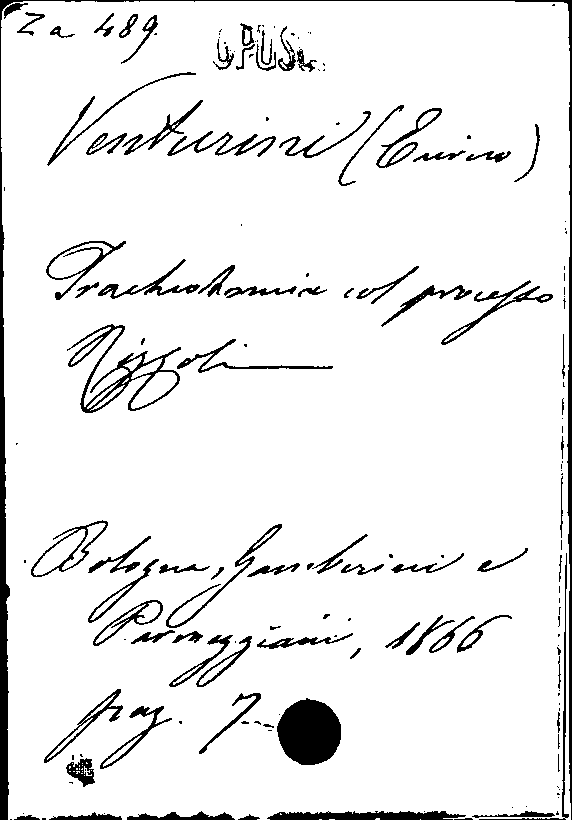 Za 489.
OPUSC.
Venturini (Enrico)
Tracheotomia col processo
Rizzoli
Bologna, Gamberini e
Parmeggiani, 1866
pag. 7